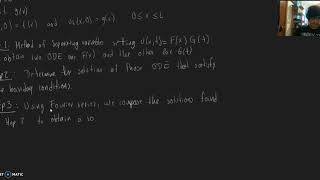 t g(x)
u(x,0) = f(x) and u_t(x,0) = g(x) 0 ≤ x ≤ L
p 1: Method of Separating variable setting u(x,t) = F(x) G(t)
obtain two ODE one F(x) and the other G(t)
ep 2. Determine the solution of these ODE that satisfy
e boundary conditions.
ep 3: Using Fourier series, we compose the solution found
step 2 to obtain a so